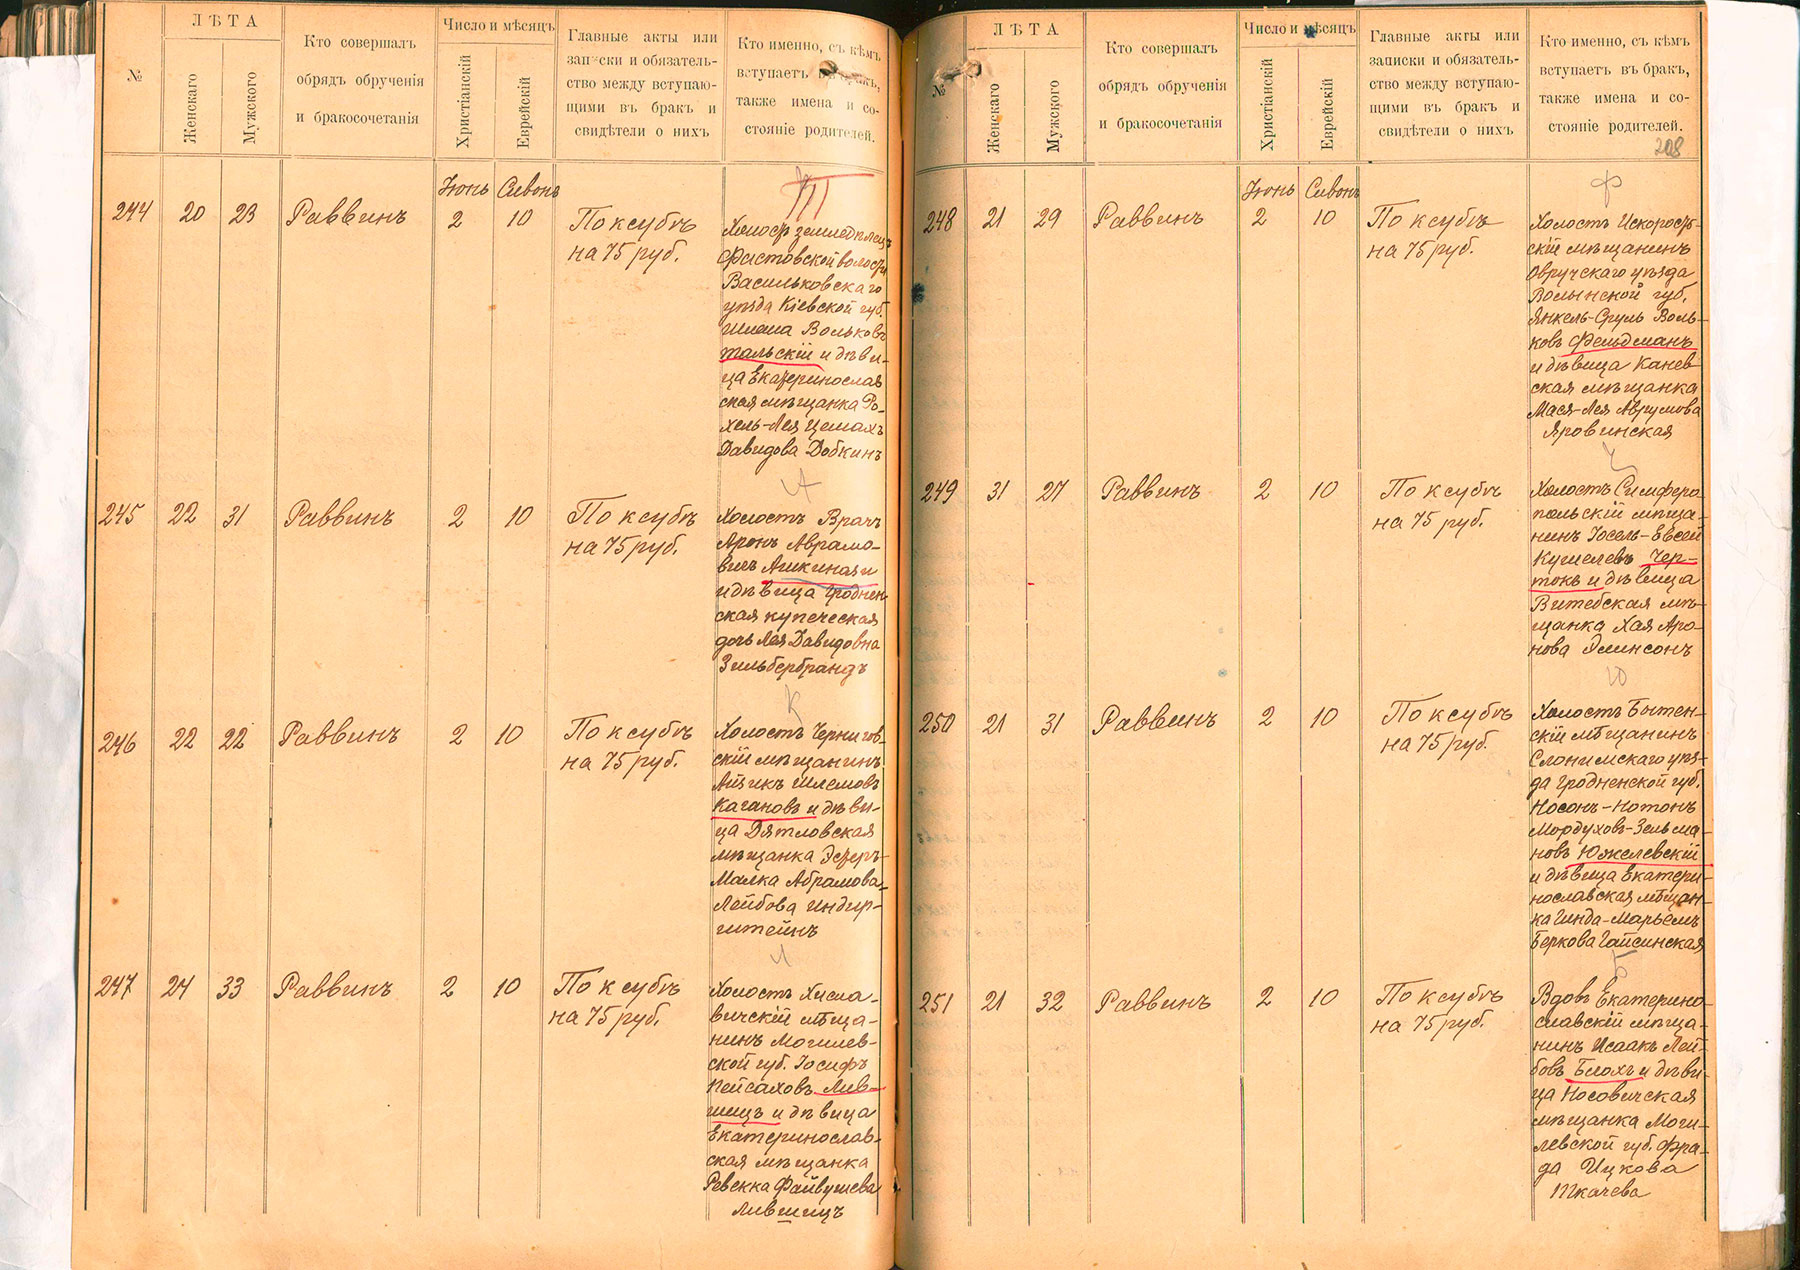 №
ЛѢТА
Женскаго
Мужского
Кто совершалъ
обрядъ обрученія
и бракосочетанія
Число и мѣсяцъ
Христіанскій
Еврейскій
Главные акты или
записки и обязатель-
ство между вступаю-
щими въ бракъ и
свидѣтели о нихъ
Кто именно, съ кѣмъ
вступаетъ въ бракъ,
также имена и со-
стояніе родителей.
Іюнь Сивонъ
244 20 23 Раввинъ 2 10 По ксубѣ
на 75 руб.
Т
Холост земледѣлецъ
Фастовской волости
Васильковскаго
уѣзда Кіевской губ.
Шлема Вольковъ
Тальскій и дѣви-
ца Екатеринослав
ская мѣщанка Ро-
хель-Лея Цемахъ
Давидова Добкинъ
245 22 31 Раввинъ 2 10 По ксубѣ
на 75 руб.
А
Холостъ Врачъ
Аронъ Аврамо-
вичъ Ашкинази
и дѣвица Гроднен
ская купеческая
дочь Лея Давидовна
Зильбербрандъ
246 22 22 Раввинъ 2 10 По ксубѣ
на 75 руб.
К
Холостъ Чернигов-
скій мѣщанинъ
Айзикъ Шлемовъ
Кагановъ и дѣви-
ца Дятловская
мѣщанка Эсѳеръ-
Малка Абрамова-
Лейбова Индир-
штейнъ
247 24 33 Раввинъ 2 10 По ксубѣ
на 75 руб.
Л
Холостъ Хисла-
вичскій мѣща-
нинъ Могилев-
ской губ. Іосифъ
Пейсаховъ Лив-
шицъ и дѣвица
Екатеринослав-
ская мѣщанка
Ревекка Файвушева
Лившицъ
№
ЛѢТА
Женскаго
Мужского
Кто совершалъ
обрядъ обрученія
и бракосочетанія
Число и мѣсяцъ
Христіанскій
Еврейскій
Главные акты или
записки и обязатель-
ство между вступаю-
щими въ бракъ и
свидѣтели о нихъ
Кто именно, съ кѣмъ
вступаетъ въ бракъ,
также имена и со-
стояніе родителей.
208
Іюнь Сивонъ
248 21 29 Раввинъ 2 10 По ксубѣ
на 75 руб.
Ф
Холостъ Искорост-
скій мѣщанинъ
Овручскаго уѣзда
Волынской губ.
Янкель-Сруль Воль-
ковъ Фельдманъ
и дѣвица Канев-
ская мѣщанка
Мася-Лея Аврумова
Яровинская
249 31 27 Раввинъ 2 10 По ксубѣ
на 75 руб.
Ч
Холостъ Симферо-
польскій мѣща-
нинъ Іосель-Евсей
Кушелевъ Чер-
токъ и дѣвица
Витебская мѣ-
щанка Хая Аро-
нова Эминсонъ
250 21 31 Раввинъ 2 10 По ксубѣ
на 75 руб.
Ю
Холостъ Бытен-
скій мѣщанинъ
Слонимскаго уѣз-
да Гродненской губ.
Носонъ-Нотонъ
Мордуховъ-Зельма-
новъ Южелевскій
и дѣвица Екатери-
нославская мѣщан-
ка Гинда-Марьемъ
Беркова Гайсинская
251 21 32 Раввинъ 2 10 По ксубѣ
на 75 руб.
Б
Вдовъ Екатерино-
славскій мѣща-
нинъ Исаакъ Лей-
бовъ Блохъ и дѣви-
ца Носовичская
мѣщанка Моги-
левской губ. Фра-
да Ицкова
Ткачева